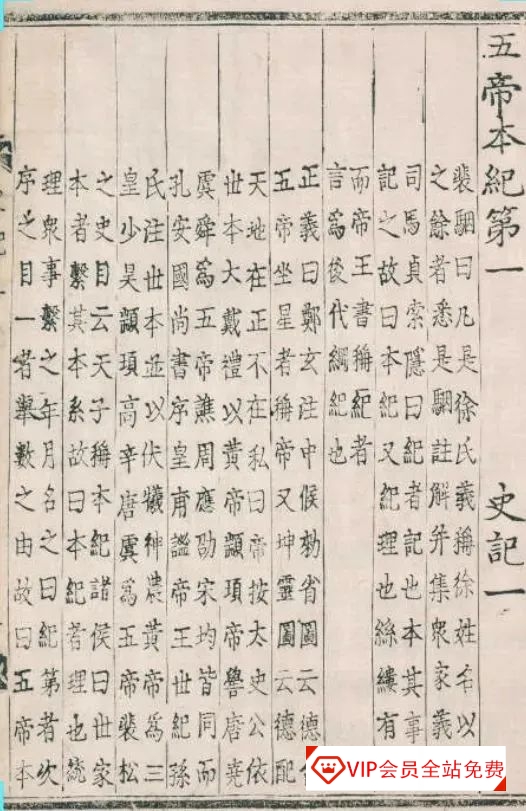 五帝本紀第一 史記一
裴駰曰凡是徐氏義稱徐姓名以
之餘者悉是駰註解并集衆家義
司馬貞索隱曰紀者記也本其事
記之故曰本紀又紀理也絲縷有
而帝王書稱紀者
言爲後代綱紀也
正義曰鄭玄注中候勑省圖云德合
五帝坐星者稱帝又坤靈圖云德配
天地在正不在私曰帝按太史公依
世本大戴禮以黃帝顓頊帝嚳唐堯
虞舜爲五帝譙周應劭宋均皆同而
孔安國尚書序皇甫謐帝王世紀孫
氏注世本並以伏犧神農黃帝爲三
皇少昊顓頊高辛唐虞爲五帝裴松
之史目云天子稱本紀諸侯曰世家
本者繫其本系故曰本紀者理也統
理衆事繫之年月名之曰紀第者次
序之目一者舉數之由故曰五帝本
VIP会员全站免费